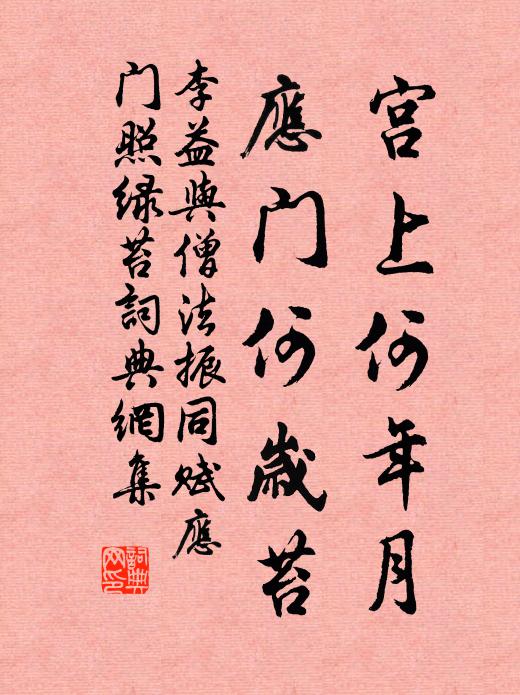 宫上何年月
應门何歲苔
李益與僧法振同赋應
门照绿苔詞典網集
詞典网印